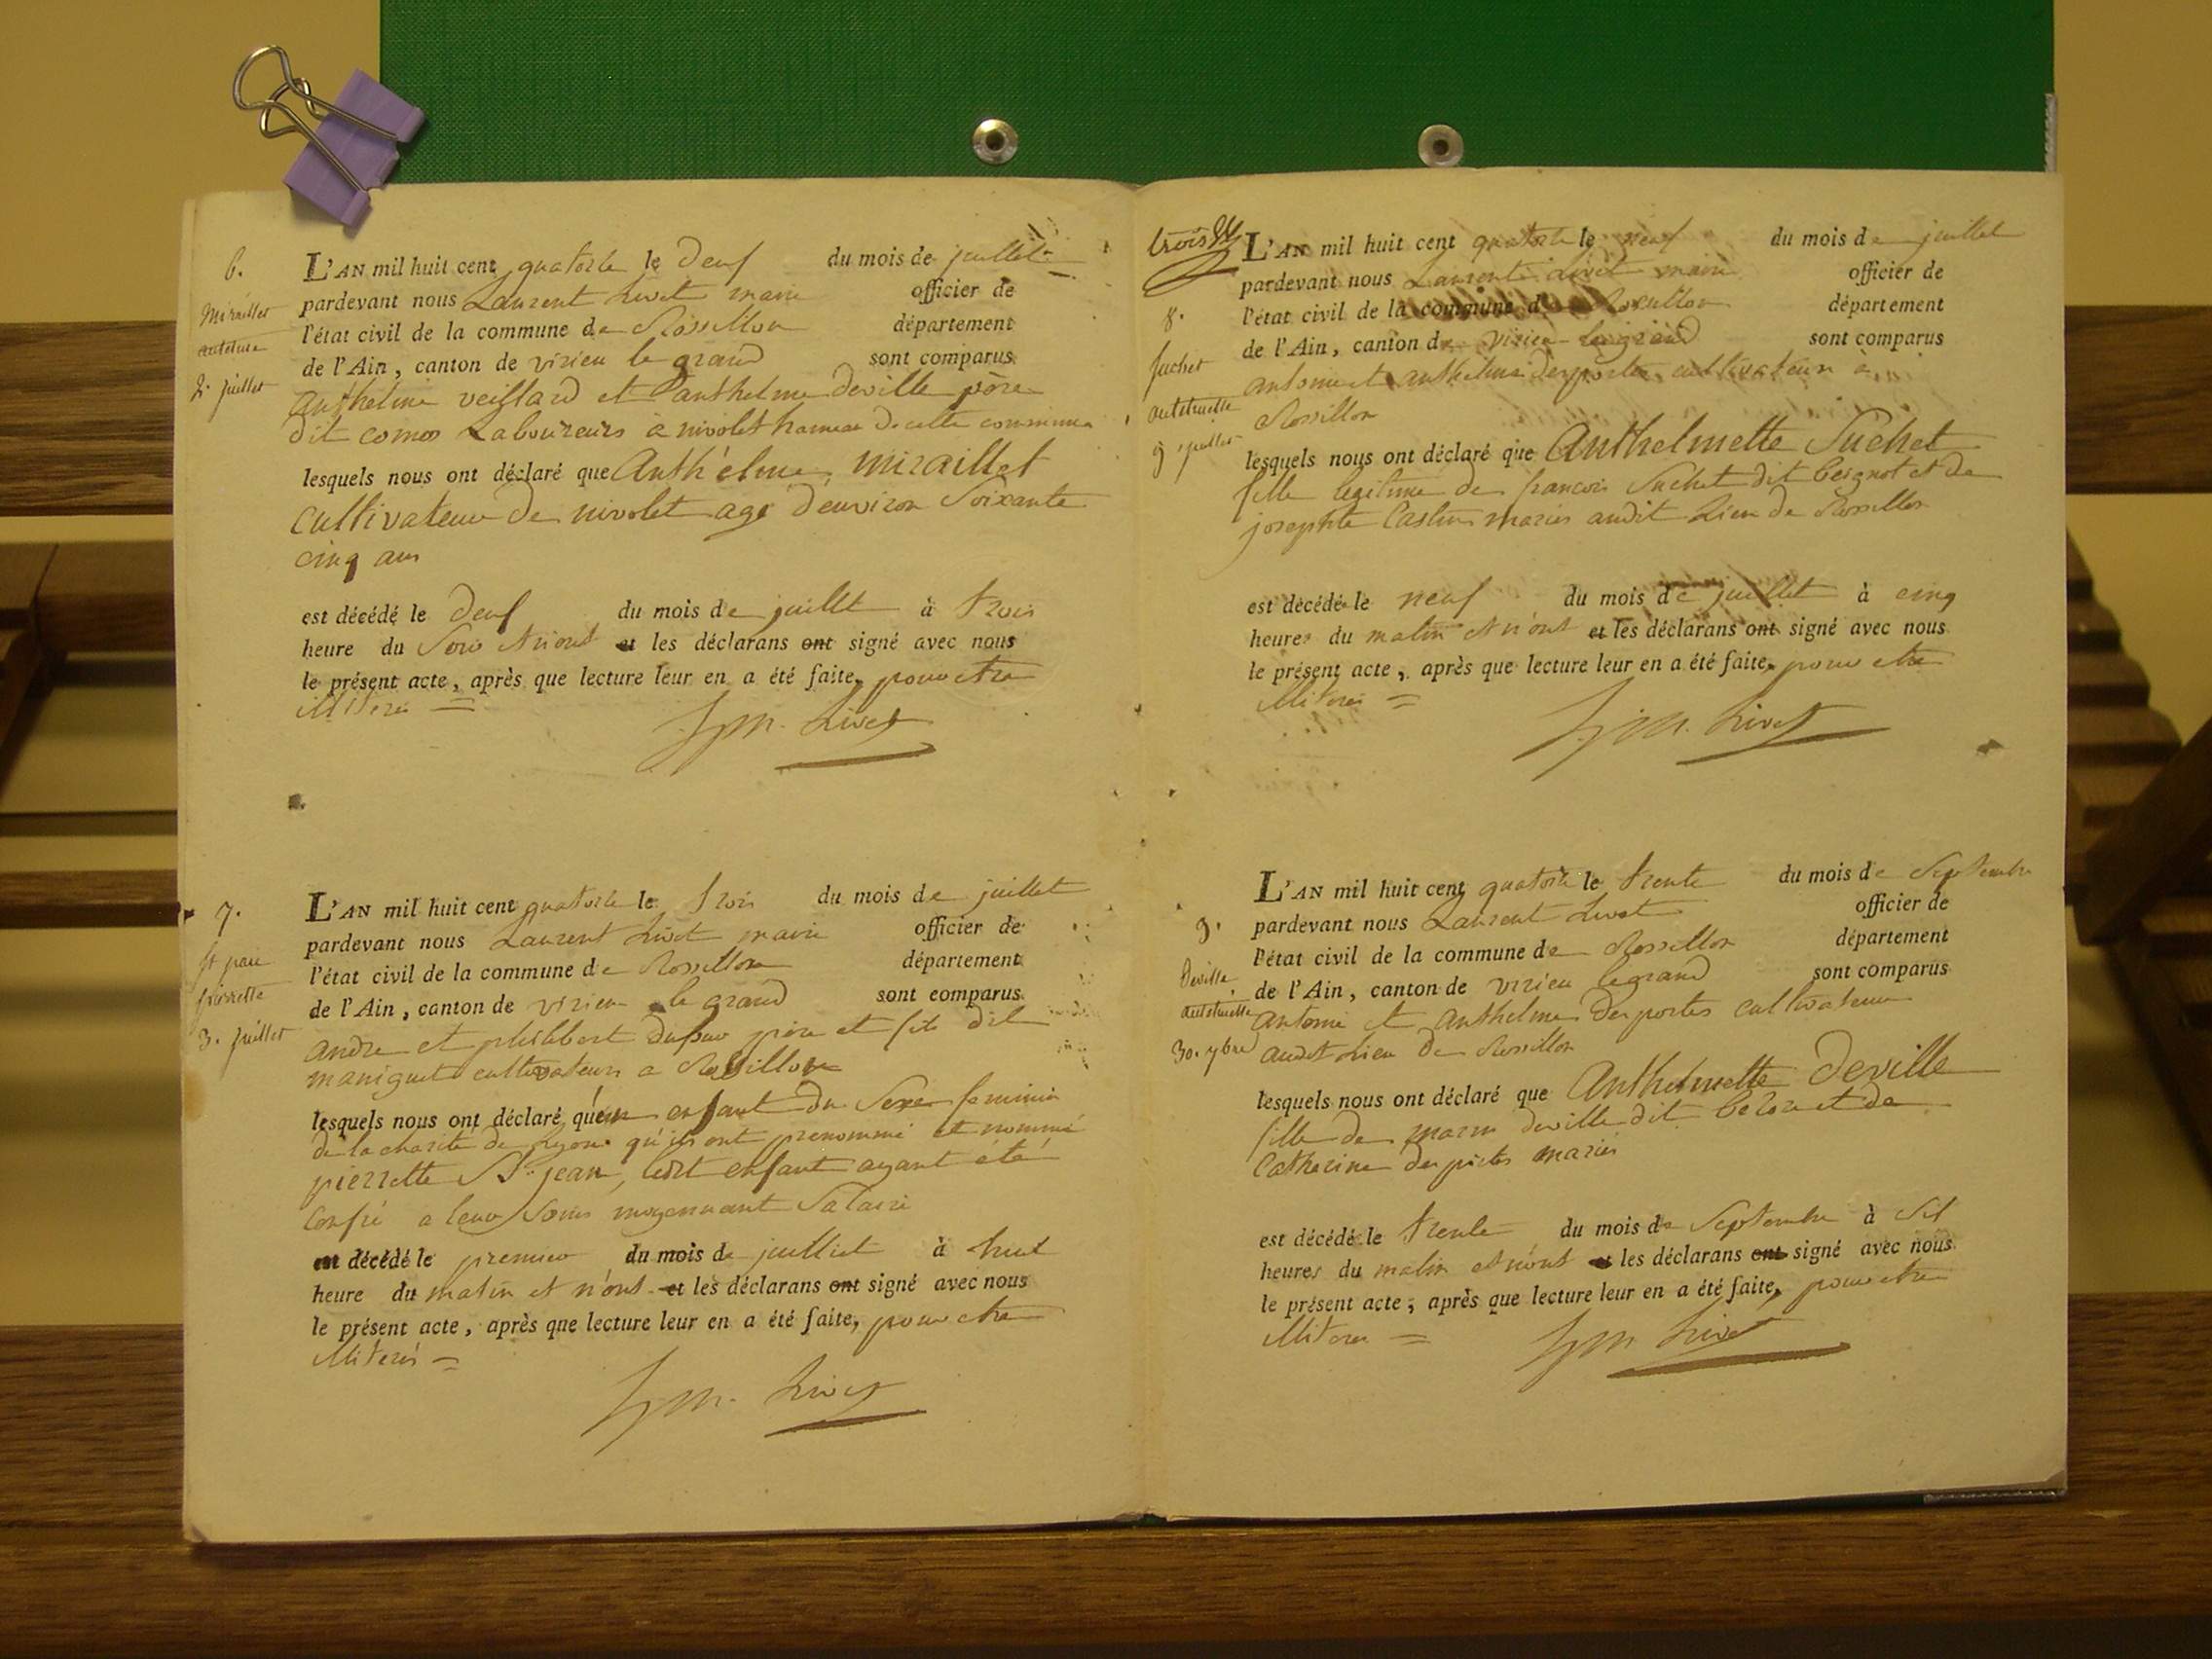 6.
Miraillet
antelme
2. juillet
L'AN mil huit cent quatorze le deux du mois de juillet
pardevant nous Laurent Livet maire officier de
l'état civil de la commune de Rossillon département
de l'Ain, canton de virieu le grand sont comparus
anthelme veillard et anthelme deville père
dit comos Laboureurs à nivolet hameau de cette commune
lesquels nous ont déclaré que Anthelme Miraillet
cultivateur de nivolet agé denviron soixante
cinq ans
est décédé le deux du mois de juillet à trois
heure du soir et n'ont et les déclarans ont signé avec nous
le présent acte, après que lecture leur en a été faite, pour etre
Miterés =
Livet
7.
st jean
pierrette
3. juillet
L'AN mil huit cent quatorze le trois du mois de juillet
pardevant nous Laurent Livet maire officier de
l'état civil de la commune de Rossillon département
de l'Ain, canton de virieu le grand sont comparus
andre et philibert père et fils dit
maniguet cultivateurs a Rossillon
lesquels nous ont déclaré qu'un enfant du sexe feminin
de la charité de Lyon qu'ils ont prenommé et nommé
pierrette St jean, ledit enfant ayant été
confié a leur soins moyennant salaire
est décédé le premier du mois de juilliet à huit
heure du matin et n'ont et les déclarans ont signé avec nous
le présent acte, après que lecture leur en a été faite, pour etre
Miterés =
Livet
trois
8.
Suchet
antelmette
9 juillet
L'AN mil huit cent quatorze le neuf du mois de juillet
pardevant nous Laurent Livet maire officier de
l'état civil de la commune de Rossillon département
de l'Ain, canton de virieu le grand sont comparus
antoine et anthelme desportes cultivateurs à
Rossillon
lesquels nous ont déclaré que Anthelmette Suchet
fille legitime de francois Suchet dit beignot et de
josephte Castin mariés audit Lieu de Rossillon
est décédé le neuf du mois de juillet à cinq
heures du matin et n'ont et les déclarans ont signé avec nous
le présent acte, après que lecture leur en a été faite, pour etre
Miterés =
Livet
9.
Deville
antelmette
30. 7bre
L'AN mil huit cent quatorze le trente du mois de Septembre
pardevant nous Laurent Livet officier de
l'état civil de la commune de Rossillon département
de l'Ain, canton de virieu legrand sont comparus
antoine et anthelme desportes cultivateurs
audit Lieu de Rossillon
lesquels nous ont déclaré que Anthelmette Deville
fille de marin deville dit et de
Catherine desportes mariés
est décédé le trente du mois de Septembre à
heures du matin et n'ont et les déclarans ont signé avec nous
le présent acte, après que lecture leur en a été faite, pour etre
Miterés =
Livet